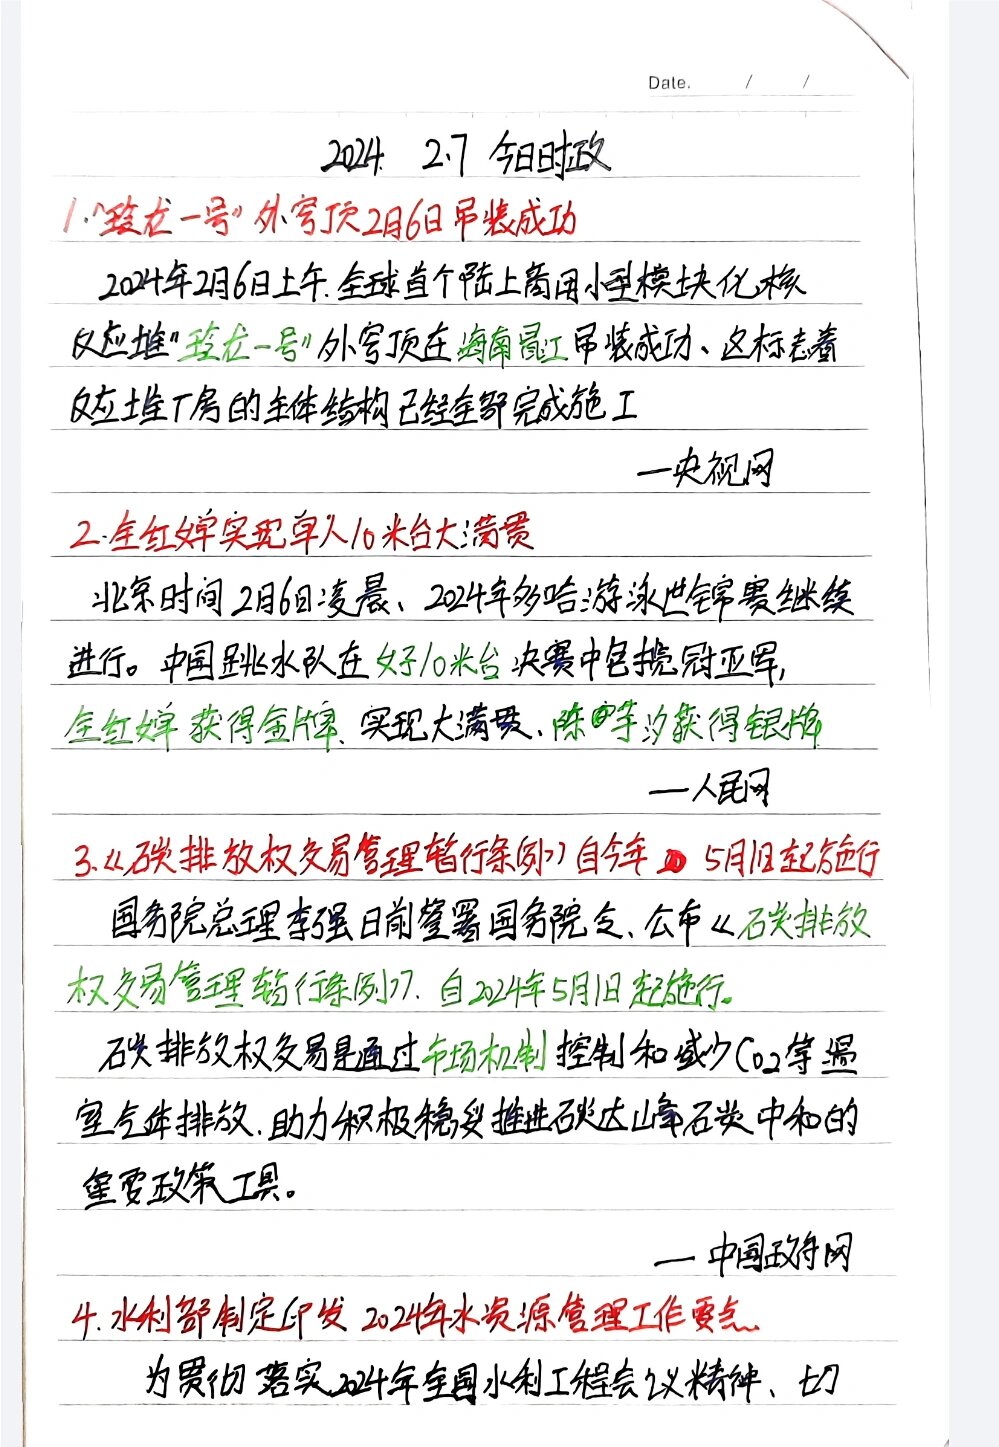 Date. / /
2024. 2.7 今日时政
1.“玲龙一号”外穹顶2月6日吊装成功
2024年2月6日上午.全球首个陆上商用小型模块化核
反应堆“玲龙一号”外穹顶在海南昌江吊装成功、这标志着
反应堆厂房的主体结构已经全部完成施工
—央视网
2.全红婵实现单人10米台大满贯
北京时间2月6日凌晨、2024年多哈游泳世锦赛继续
进行。中国跳水队在女子10米台决赛中包揽冠亚军,
全红婵获得金牌、实现大满贯、陈芋汐获得银牌
—人民网
3.《碳排放权交易管理暂行条例》自今年5月1日起施行
国务院总理李强日前签署国务院令、公布《碳排放
权交易管理暂行条例》.自2024年5月1日起施行。
碳排放权交易是通过市场机制控制和减少CO2等温
室气体排放.助力积极稳妥推进碳达峰碳中和的
重要政策工具。
—中国政府网
4.水利部制定印发2024年水资源管理工作要点.
为贯彻落实2024年全国水利工程会议精神、切